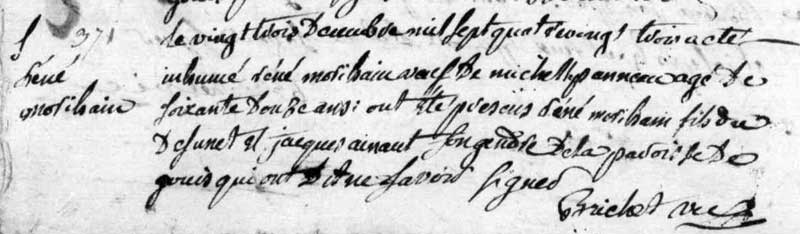 S 371
réné
morihain
le vingt trois decembre mil sept quatrevingt trois a cté
inhumé réné morihain veuf de michelle panneau agé de
soixante douze ans : ont été presens réné morihain fils du
defunct et jacques ainaut son gendre de la paroisse de
gouis qui ont dit ne savoir signer
Brichet vic